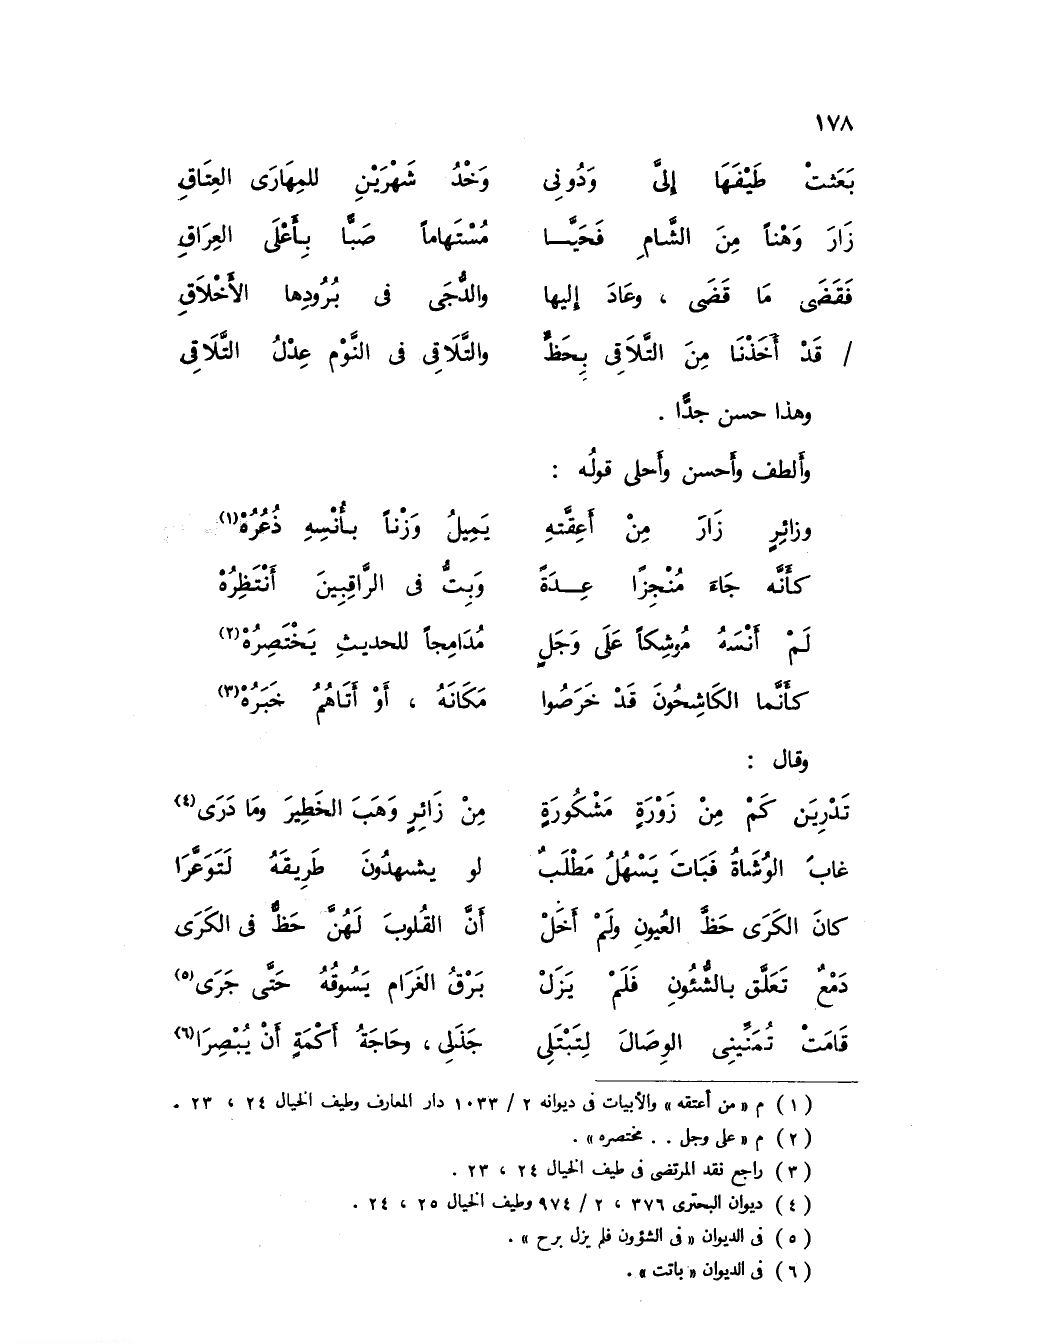 ١٧٨
بَعَثتْ طَيْفَهَا إِلىَّ وَدُونِى وَخْدُ شَهْرَيْنِ للمِهَارَى العِتَاقِ
زَارَ وَهْناً مِنَ الشَّامِ فَحَيَّا مُسْتَهاماً صَبًّا بِأَعْلَى العِرَاقِ
فَقَضَى مَا قَضَى ، وعَادَ إِليها والدُّجَى فى بُرُودِها الأَخْلَاقِ
/ قَدْ أَخَذْنَا مِنَ التَّلَاقِى بِحَظٍّ والتَّلَاقِى فى النَّوْم عِدْلُ التَّلَاقِى
وهذا حسن جدًّا .
وأَلطف وأَحسن وأَحلى قولُه :
وزائِرٍ زَارَ مِنْ أَعِقَّتهِ يَمِيلُ وَزْناً بأُنْسِهِ ذُعُرُهْ(١)
كأَنَّه جَاءَ مُنْجِزًا عِدَةً وَبِتُّ فى الرَّاقِبِينَ أَنْتَظِرُهْ
لَمْ أَنْسَهُ مُوشِكاً عَلَى وَجَلٍ مُدَامِجاً للحديثِ يَخْتَصِرُهْ(٢)
كأَنَّما الكَاشِحُونَ قَدْ خَرَصُوا مَكَانَهُ ، أَوْ أَتَاهُمُ خَبَرُهْ(٣)
وقال :
تَدْرِيَن كَمْ مِنْ زَوْرَةٍ مَشْكُورَةٍ مِنْ زَائِرٍ وَهَبَ الخَطِيرَ ومَا دَرَى(٤)
غابَ الوُشَاةُ فَبَاتَ يَسْهُلُ مَطْلَبٌ لو يشهدُونَ طَرِيقَهُ لَتَوَعَّرَا
كانَ الكَرَى حَظَّ العُيونِ ولَمْ أَخَلْ أَنَّ القُلوبَ لَهُنَّ حَظٌّ فى الكَرَى
دَمْعٌ تَعَلَّق بالشُّئُونِ فَلَمْ يَزَلْ بَرْقُ الغَرَام يَسُوقُهُ حَتَّى جَرَى(٥)
قَامَتْ تُمَنِّينِى الوِصَالَ لِتَبْتَلِى جَذَلِى ، وحَاجَةُ أَكْمَةٍ أَنْ يُبْصِرَا(٦)
( ١ ) م « من أعتقه » والأبيات فى ديوانه ٢ / ١٠٣٣ دار المعارف وطيف الخيال ٢٤ ، ٢٣ .
( ٢ ) م « على وجل . . مختصره » .
( ٣ ) راجع نقد المرتضى فى طيف الخيال ٢٤ ، ٢٣ .
( ٤ ) ديوان البحترى ٣٧٦ ، ٢ / ٩٧٤ وطيف الخيال ٢٥ ، ٢٤ .
( ٥ ) فى الديوان « فى الشؤون فلم يزل برح » .
( ٦ ) فى الديوان « باتت » .